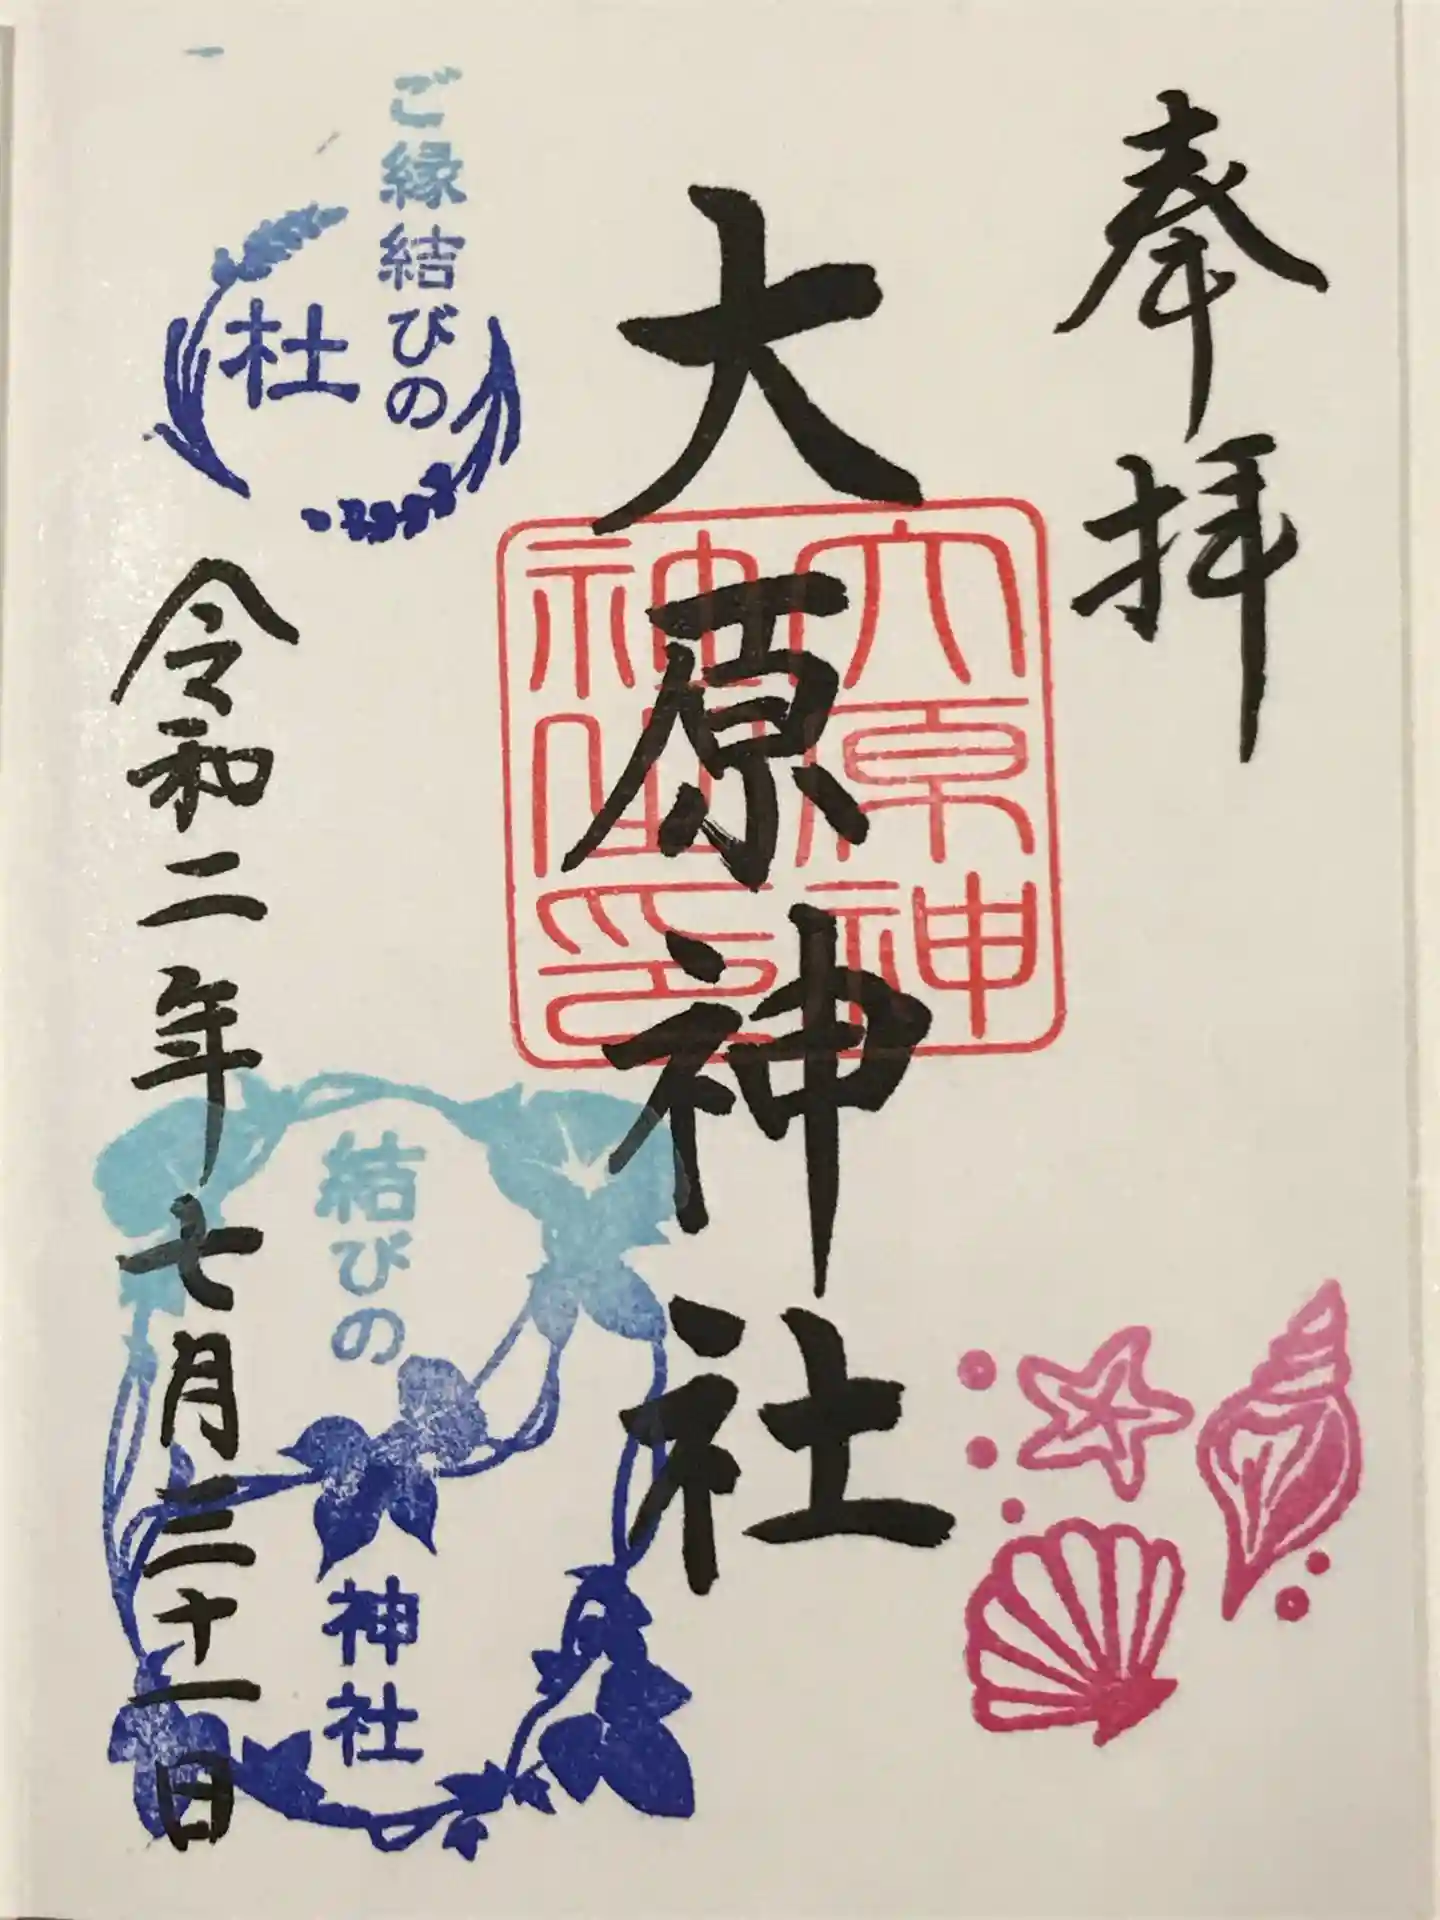 奉拝
大原神社
大原神神社印
ご縁結びの
杜
結びの
神社
令和二年七月三十一日